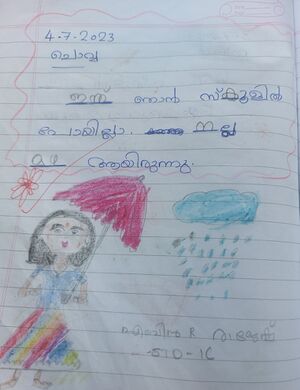 4.7.2023
ചൊവ്വ
ഇന്ന് ഞാൻ സ്കൂളിൽ
പോയില്ലാ. നല്ല
മഴ ആയിരുന്നു.
R
STD-1C